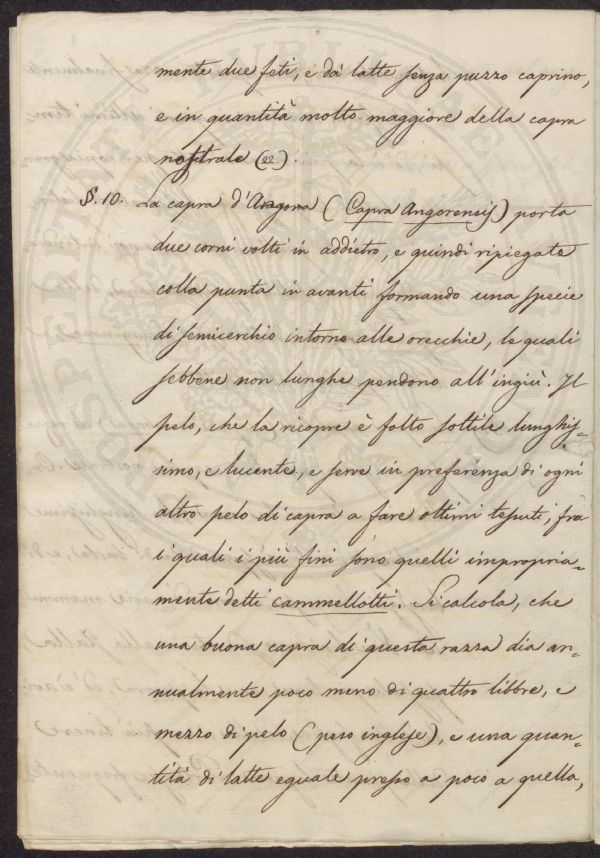 mente due feti, e dà latte senza puzzo caprino,
e in quantità molto maggiore della capra
nostrale (22).
§. 10. La capra d'Angora (Capra Angorensis) porta
due corni volti in addietro, e quindi ripiegate
colla punta in avanti formando una specie
di semicerchio intorno alle orecchie, le quali
sebbene non lunghe pendono all'ingiù. Il
pelo, che la ricopre è folto sottile lunghis-
simo, e lucente, e serve in preferenza di ogni
altro pelo di capra a fare ottimi tessuti, fra
i quali i più fini sono quelli impropria-
mente detti cammellotti. Si calcola, che
una buona capra di questa razza dia an-
nualmente poco meno di quattro libbre, e
mezzo di pelo (peso inglese), e una quan-
tità di latte eguale presso a poco a quella,